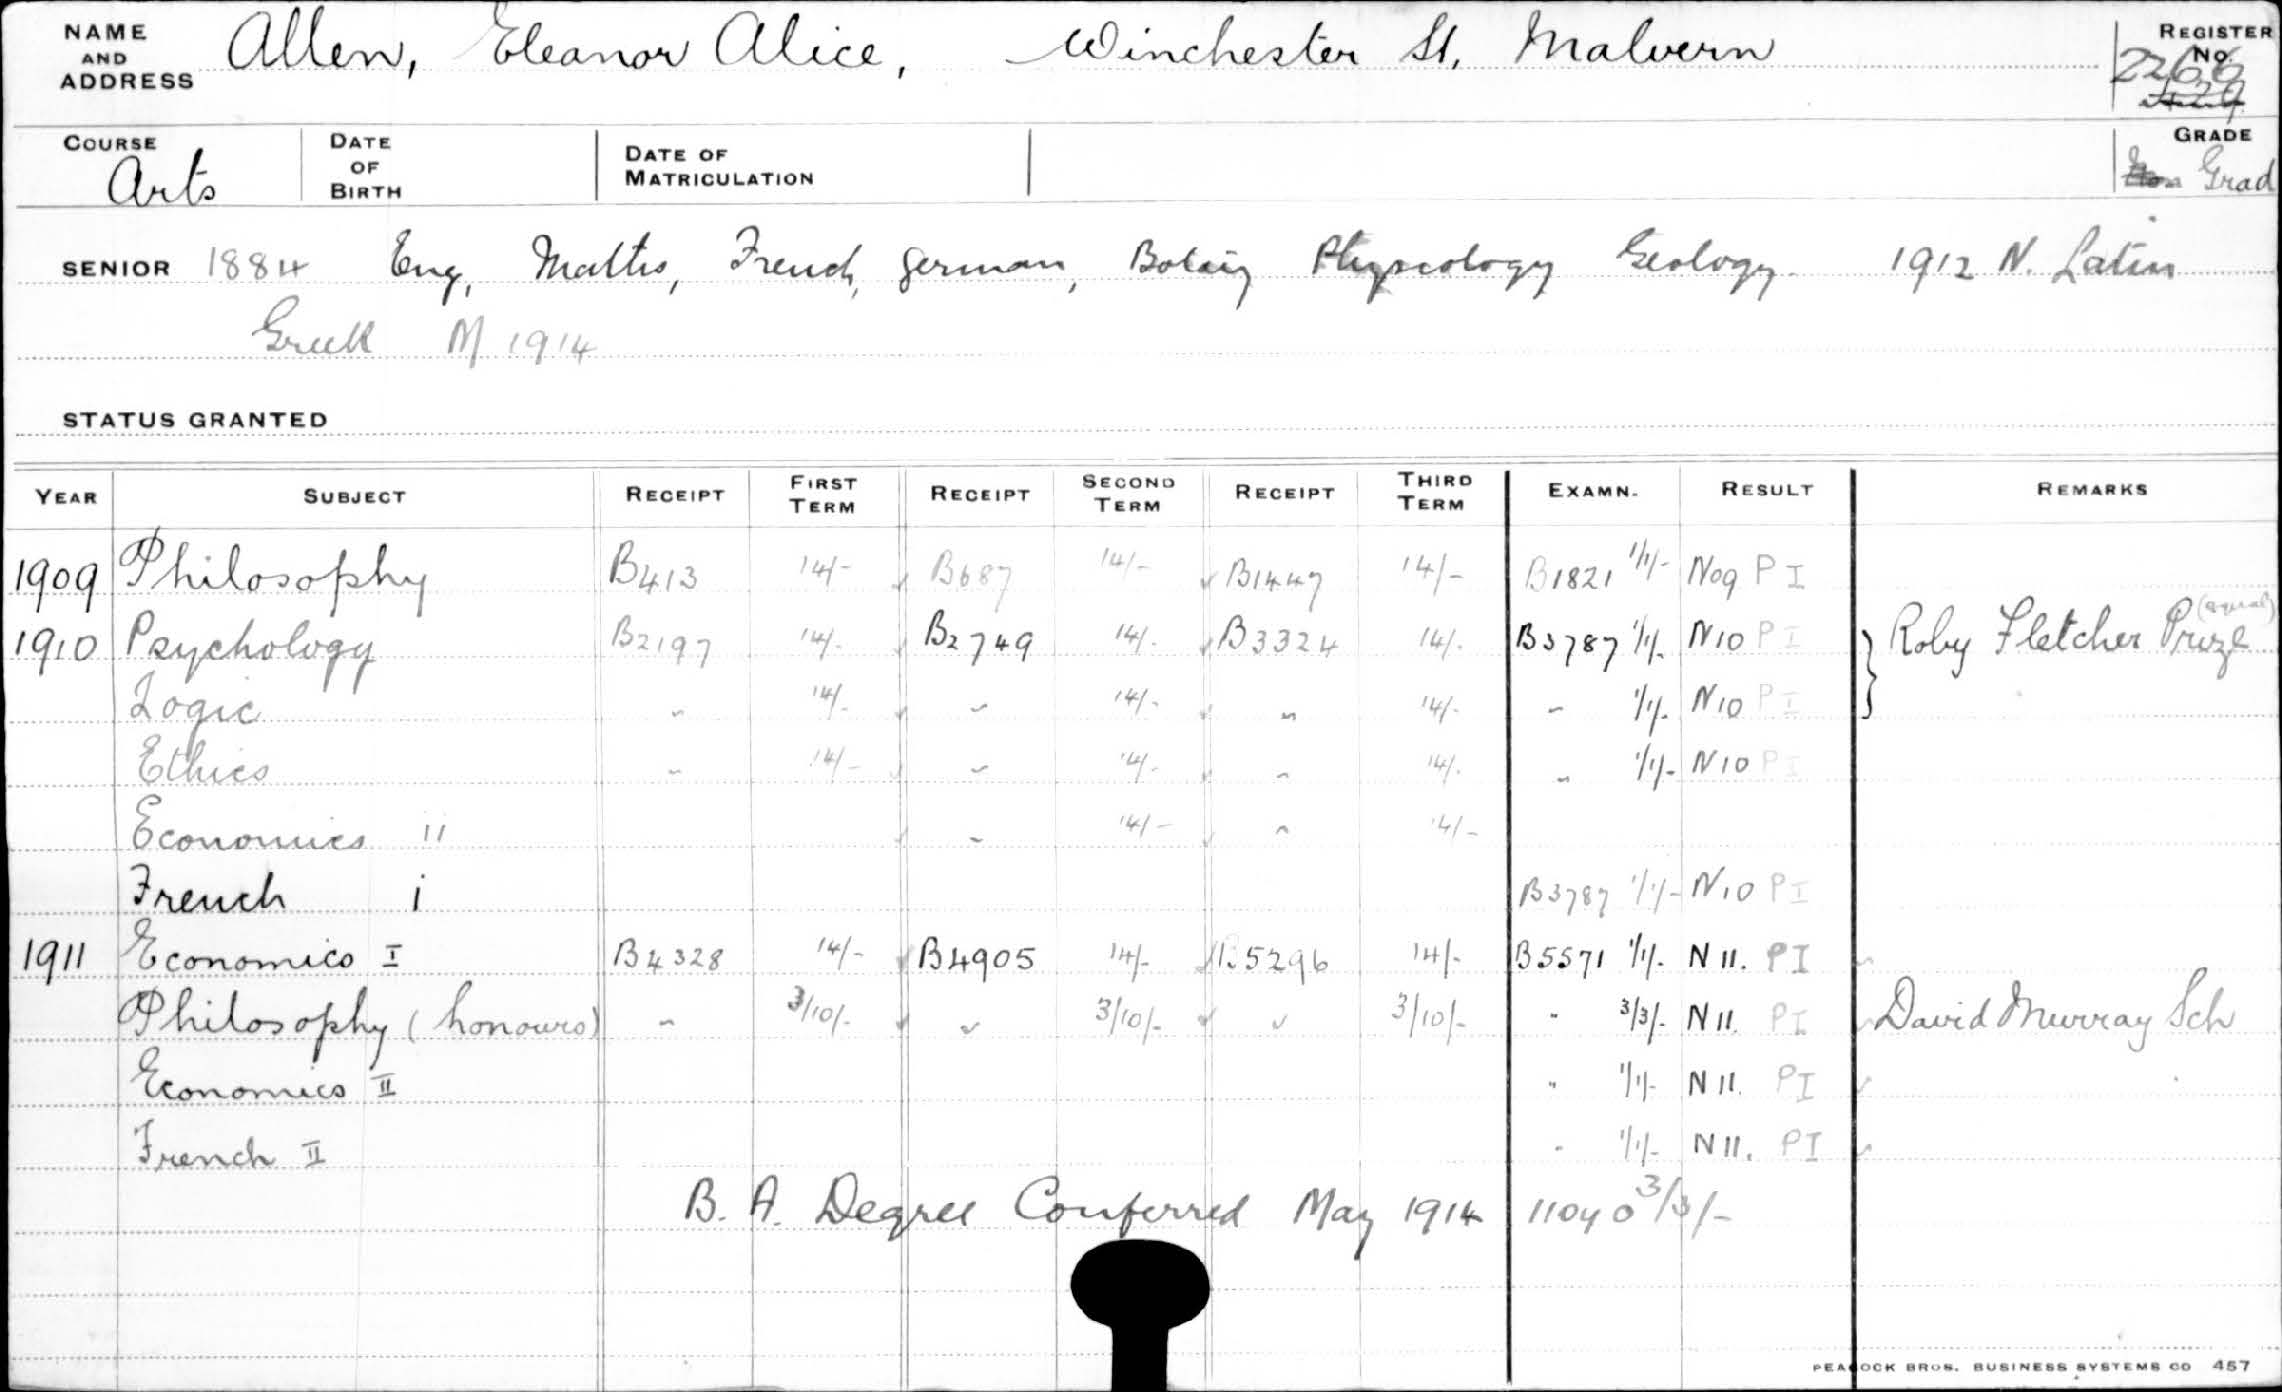 NAME AND ADDRESS Allen, Eleanor Alice, Winchester St, Malvern REGISTER No. 2266
COURSE Arts DATE OF BIRTH DATE OF MATRICULATION GRADE Grad
SENIOR 1884 Eng, Maths, French, German, Botany Physiology Geology. 1912 N. Latin
Greek M 1914
STATUS GRANTED
YEAR SUBJECT RECEIPT FIRST TERM RECEIPT SECOND TERM RECEIPT THIRD TERM EXAMN. RESULT REMARKS
1909 Philosophy B413 14/- B687 14/- B1447 14/- B1821 1/1/- N09 P I
1910 Psychology B2197 14/- B2749 14/- B3324 14/- B3787 1/1/- N10 P I Roby Fletcher Prize (equal)
Logic " 14/- " 14/- " 14/- " 1/1/- N10 P I
Ethics " 14/- " 14/- " 14/- " 1/1/- N10 P I
Economics ii " 14/- " 14/-
French i B3787 1/1/- N10 P I
1911 Economics I B4328 14/- B4905 14/- B5296 14/- B5571 1/1/- N 11. P I
Philosophy (honours) " 3/10/- " 3/10/- " 3/10/- " 3/3/- N 11. P I David Murray Sch
Economics II " 1/1/- N 11. P I
French II " 1/1/- N 11. P I
B. A. Degree Conferred May 1914 11040 3/3/-
PEACOCK BROS. BUSINESS SYSTEMS CO 457